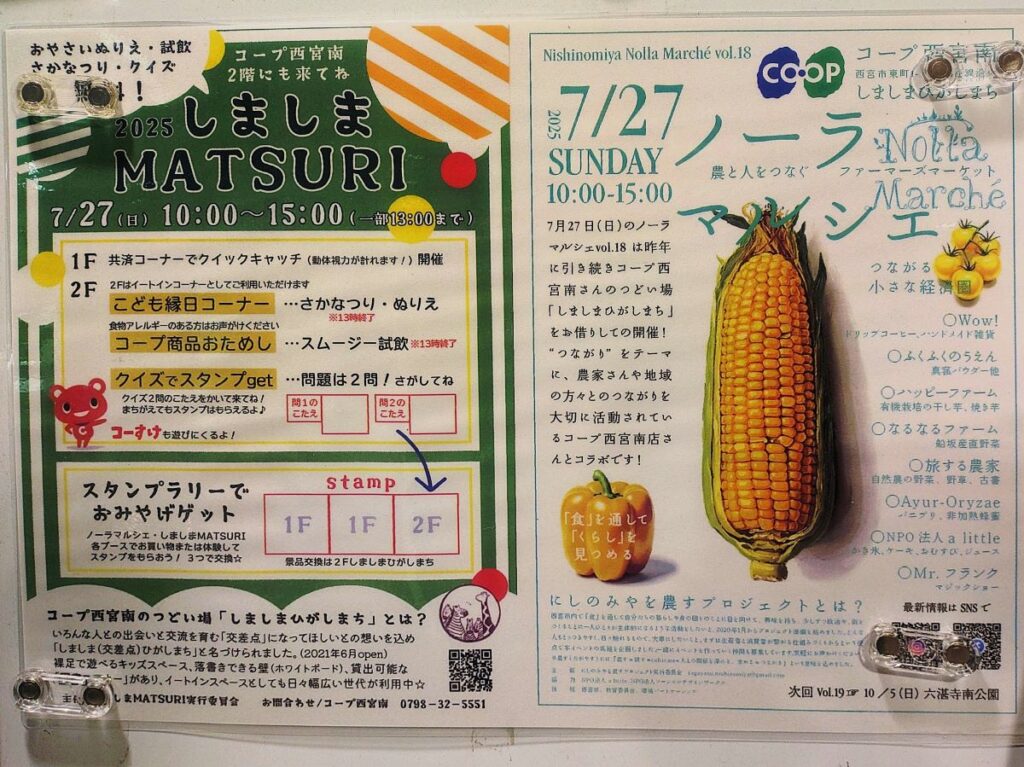 おやさいぬりえ・試飲
さかなつり・クイズ
コープ西宮南
2階にも来てね
2025 しましま
MATSURI
7/27(日) 10:00〜15:00(一部13:00まで)
1F 共済コーナーでクイックキャッチ(動体視力が計れます!)開催
2F 2Fはイートインコーナーとしてご利用いただけます
こども縁日コーナー …さかなつり・ぬりえ
※13時終了
食物アレルギーのある方はお声がけください
コープ商品おためし …スムージー試飲 ※13時終了
クイズでスタンプget …問題は2問!さがしてね
クイズ2問のこたえをかいて来てね!
まちがえてもスタンプはもらえるよ♪
問1の
こたえ
問2の
こたえ
コーすけも遊びにくるよ!
スタンプラリーで
おみやげゲット
ノーラマルシェ・しましまMATSURI
各ブースでお買い物または体験して
スタンプをもらおう! 3つで交換☆
stamp
1F 1F 2F
景品交換は2Fしましまひがしまち
コープ西宮南のつどい場「しましまひがしまち」とは?
いろんな人との出会いと交流を育む「交差点」になってほしいとの想いを込め
「しましま(交差点)ひがしまち」と名づけられました。(2021年6月open)
裸足で遊べるキッズスペース、落書きできる壁(ホワイトボード)、貸出可能な
ーがあり、イートインスペースとしても日々幅広い世代が利用中☆
しまMATSURI実行委員会 お問合わせ/コープ西宮南 0798-32-5551
Nishinomiya Nolla Marché vol.18
CO·OP
コープ西宮南
西宮市東町
しましまひがしまち
2025 7/27
SUNDAY
10:00-15:00
ノーラ
マルシェ
農と人をつなぐ ファーマーズマーケット
Nolla
Marché
7月27日(日)のノーラ
マルシェvol.18 は昨年
に引き続きコープ西
宮南さんのつどい場
「しましまひがしまち」
をお借りしての開催!
“つながり”をテーマ
に、農家さんや地域
の方々とのつながりを
大切に活動されてい
るコープ西宮南店さ
んとコラボです!
つながる
小さな経済圏
○Wow!
ドリップコーヒー、ハンドメイド雑貨
○ふくふくのうえん
真菰パウダー他
○ハッピーファーム
有機栽培の干し芋、焼き芋
○なるなるファーム
船坂産直野菜
○旅する農家
自然農の野菜、野草、古書
○Ayur-Oryzae
パニプリ、非加熱蜂蜜
○NPO法人 a little
かき氷、ケーキ、おむすび、ジュース
○Mr. フランク
マジックショー
「食」を通して
「くらし」を
見つめる
にしのみやを農すプロジェクトとは?
最新情報は SNS で
次回 Vol.19☞ 10／5(日) 六湛寺南公園